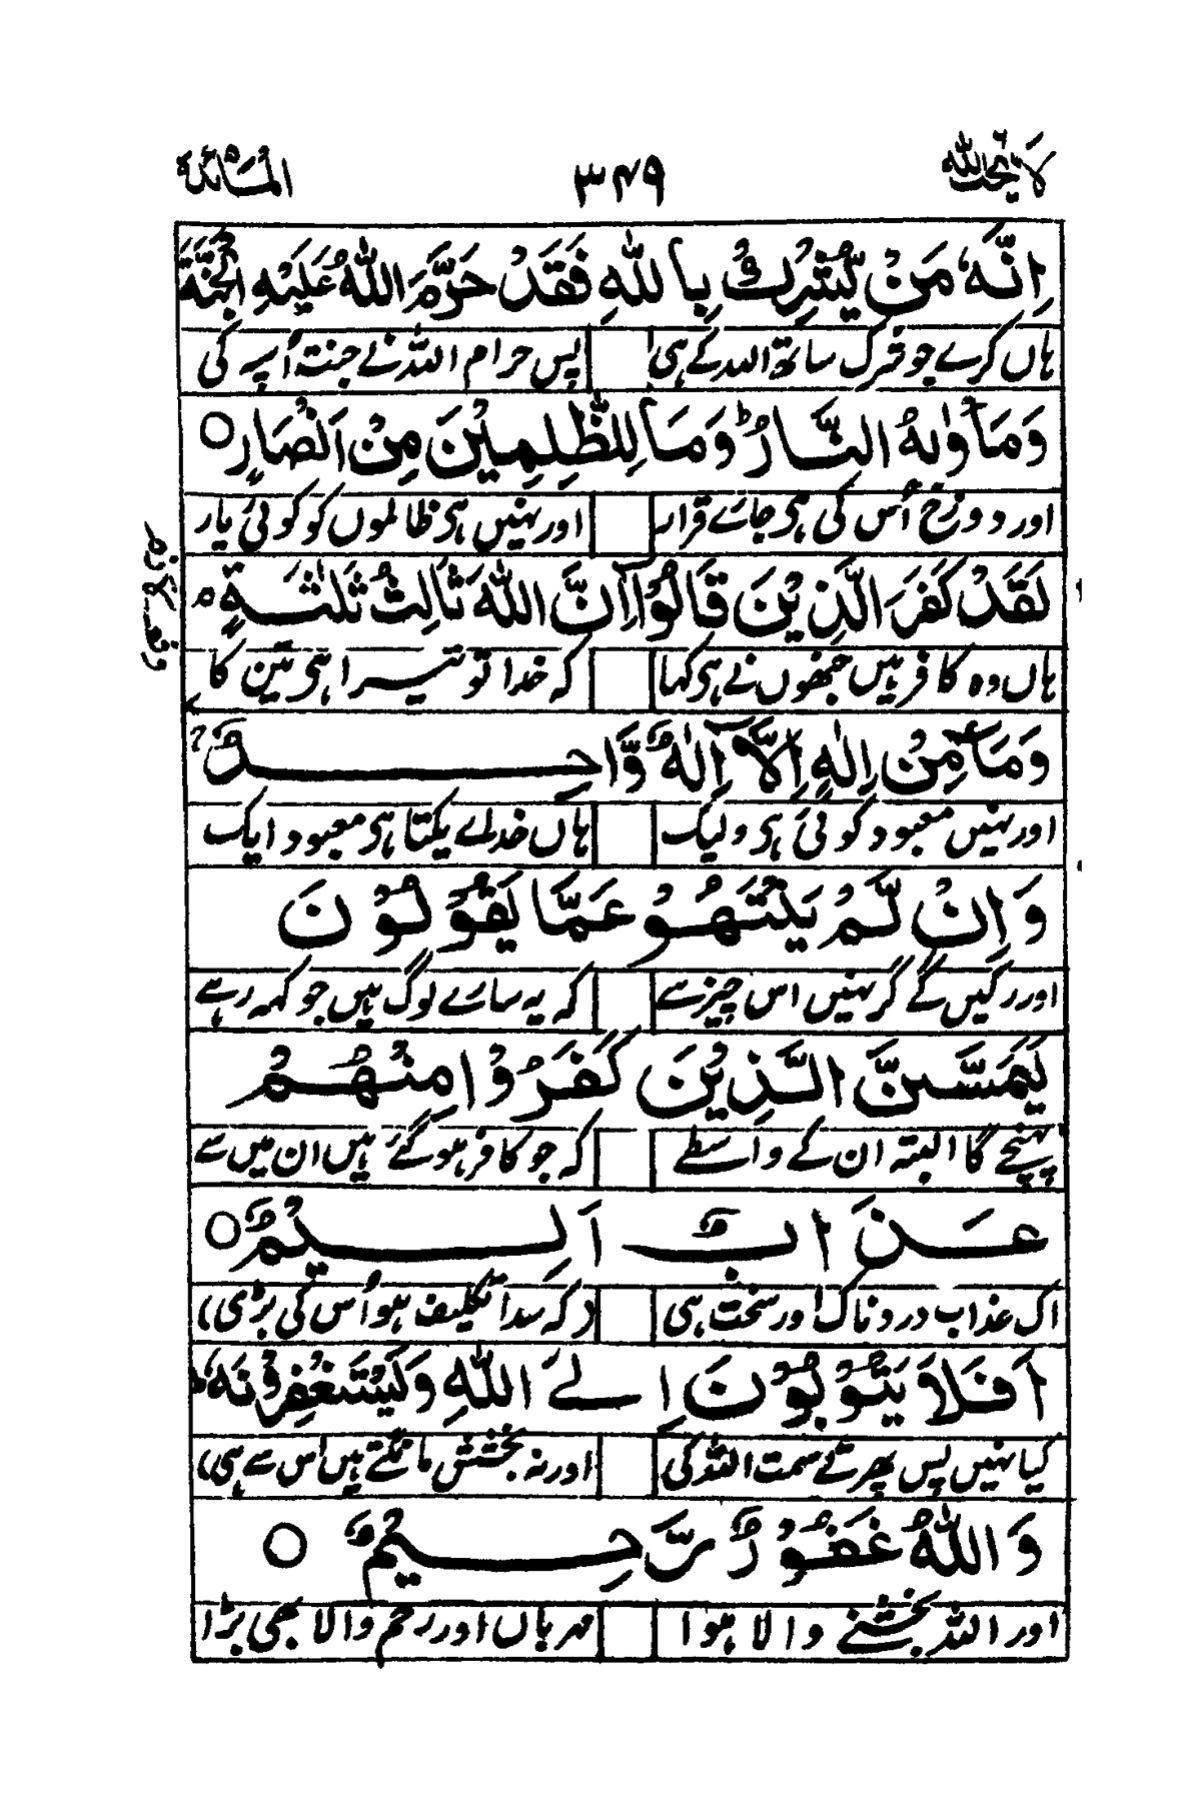 لَا يُحِبُّ اللّٰهُ ۳۴۹ الْمَائِدَة
اِنَّهٗ مَنْ يُّشْرِكْ بِاللّٰهِ فَقَدْ حَرَّمَ اللّٰهُ عَلَيْهِ الْجَنَّةَ
ہاں کرے جو شرک ساتھ اللہ کے ہی پس حرام اللہ نے جنت اُپہ کی
وَمَاْوٰىهُ النَّارُ ؕ وَمَا لِلظّٰلِمِيْنَ مِنْ اَنْصَارٍ ○
اور دوزخ اُس کی ہی جاے قرار اور نہیں ہی ظالموں کو کوئی یار
لَقَدْ كَفَرَ الَّذِيْنَ قَالُوْٓا اِنَّ اللّٰهَ ثَالِثُ ثَلٰثَةٍ ۘ
ہاں وہ کافر ہیں جنھوں نے ہی کہا کہ خدا تو تیسرا ہی تین کا
وَمَا مِنْ اِلٰهٍ اِلَّآ اِلٰهٌ وَّاحِدٌ ؕ
اور نہیں معبود کوئی ہی ولیک ہاں خداے یکتا ہی معبود ایک
وَاِنْ لَّمْ يَنْتَهُوْ عَمَّا يَقُوْلُوْنَ
اور رکیں گے گر نہیں اس چیز سے کہ یہ سارے لوگ ہیں جو کہہ رہے
لَيَمَسَّنَّ الَّذِيْنَ كَفَرُوْا مِنْهُمْ
پہنچے گا البتہ ان کے واسطے کہ جو کافر ہو گئے ہیں ان میں سے
عَذَابٌ اَلِيْمٌ ○
اک عذاب دردناک اور سخت ہی (کہ سدا تکلیف ہو اُس کی بڑی)
اَفَلَا يَتُوْبُوْنَ اِلَى اللّٰهِ وَيَسْتَغْفِرُوْنَهٗ ؕ
کیا نہیں پس پھرتے سمت اللہ کی اور نہ بخشش مانگتے ہیں اُس سے ہی)
وَاللّٰهُ غَفُوْرٌ رَّحِيْمٌ ○
اور اللہ بخشنے والا ہوا مہرباں اور رحم والا بھی بڑا